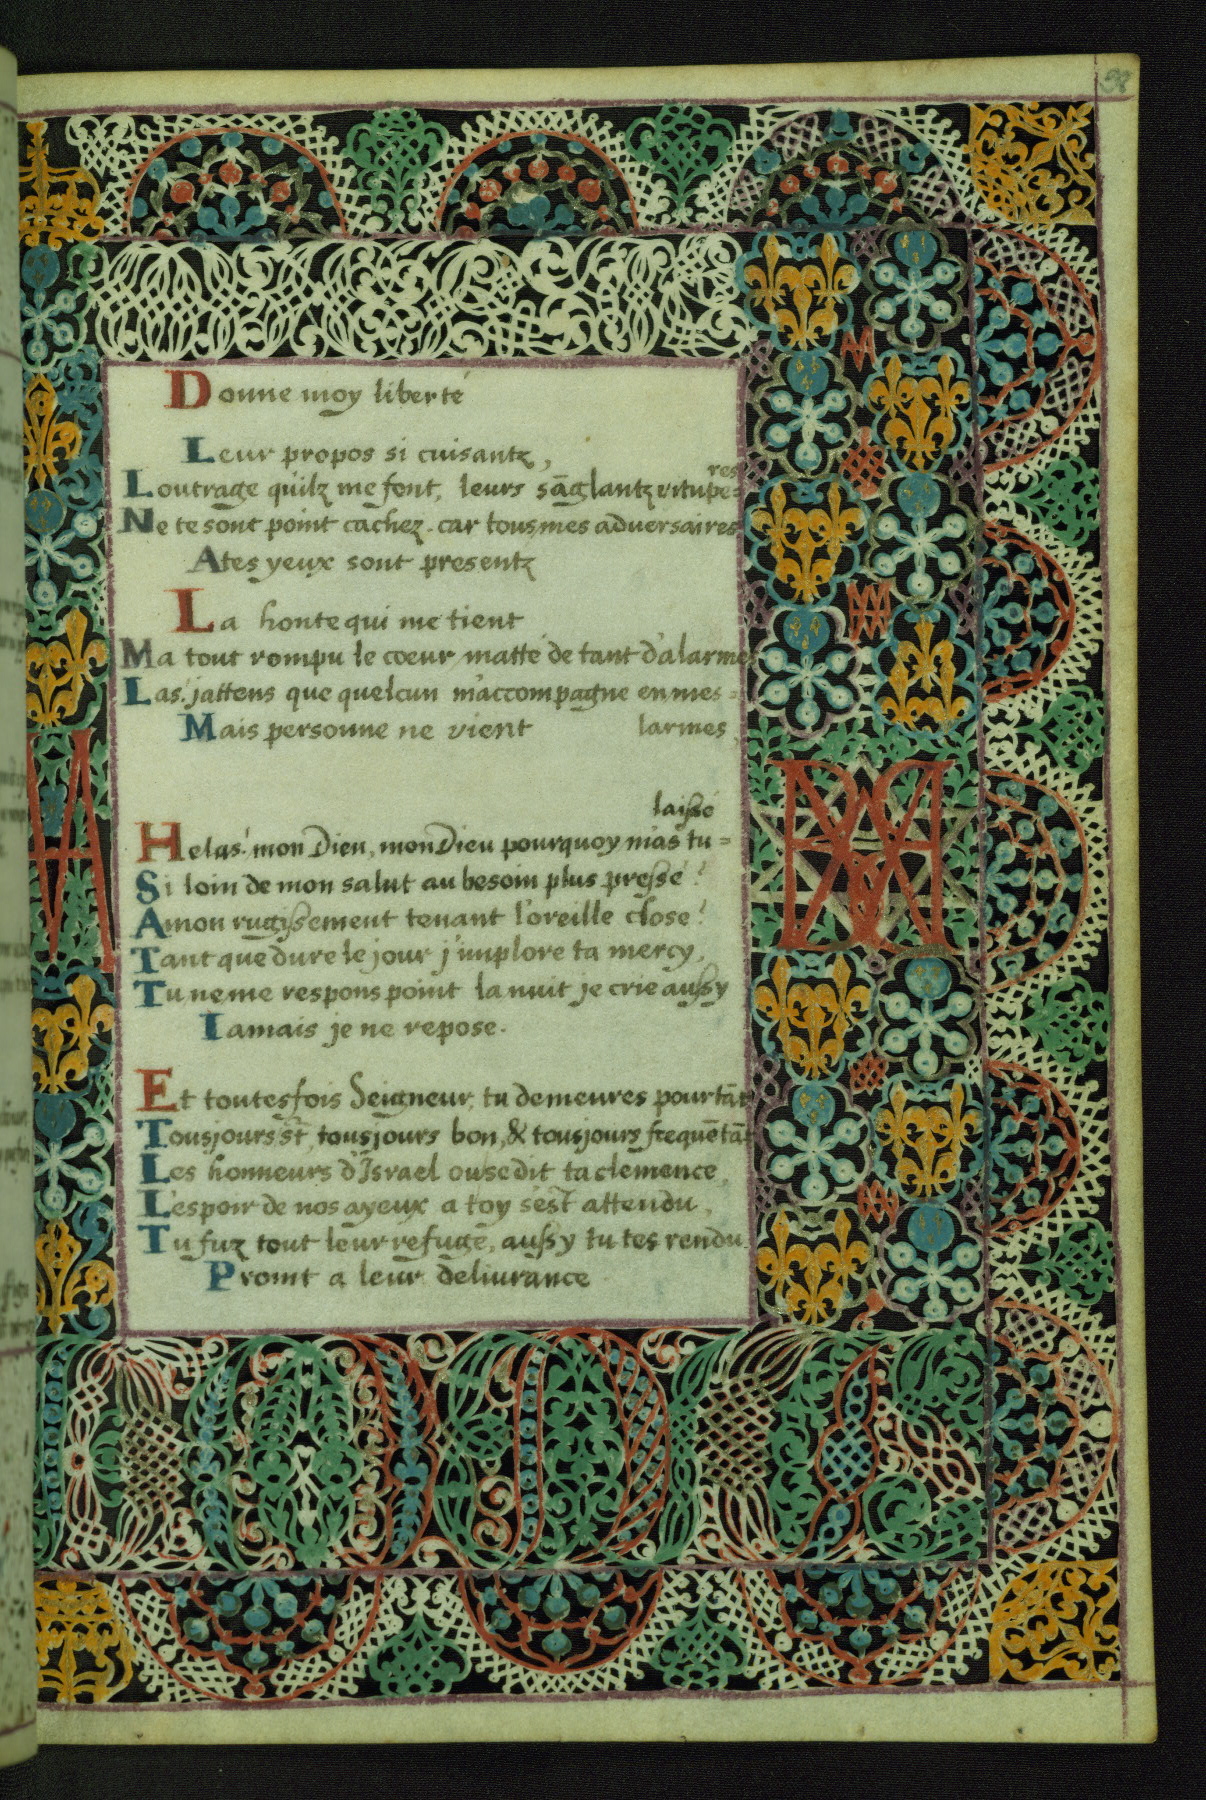 Donne moy liberté
Leur propos si cuisantz,
Loutrage quilz me font, leurs sāglantz vitupe=
res
Ne te sont point cachez. car tous mes adversaires
Ates yeux sont presentz
La honte qui me tient
Ma tout rompu le coeur matté de tant d'alarme
Las! jattens que quelcun m'accompagne en mes =
Mais personne ne vient larmes,
laissé
Helas! mon Dieu, mon Dieu pourquoy m'as tu =
Si loin de mon salut au besoin plus pressé?
Amon rugissement tenant l'oreille close?
Tant que dure le jour j'implore ta mercy,
Tu ne me respons point la nuit je crie aussy
Iamais je ne repose.
Et toutesfois Seigneur, tu demeures pourtāt
Tousjours st, tousjours bon, & tousjours frequētāt
Les honneurs d'Israel ou se dit ta clemence,
L'espoir de nos ayeux a toy sest attendu,
Tu fuz tout leur refuge, aussy tu tes rendu
Promt a leur delivrance